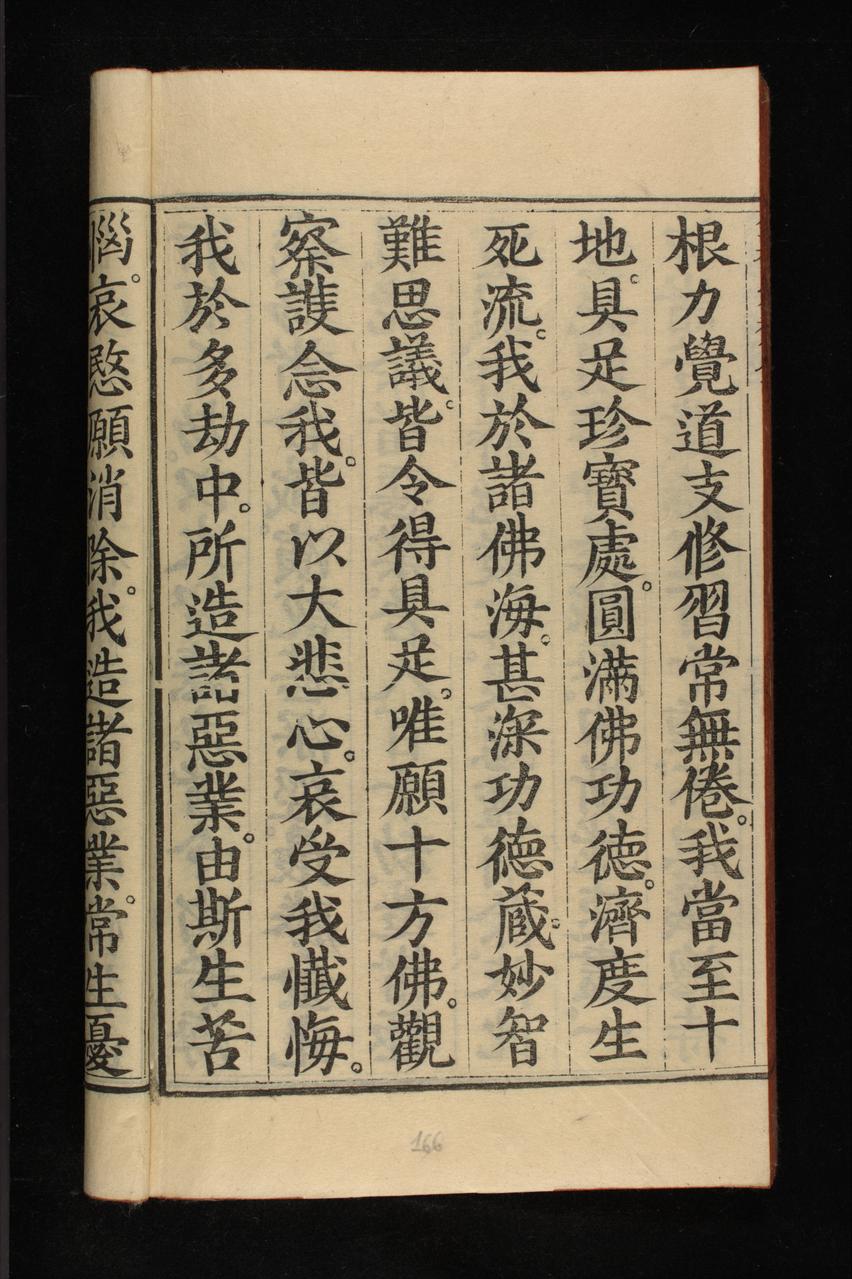 根力覺道支修習常無倦。我當至十
地。具足珍寶處。圓滿佛功德。濟度生
死流。我於諸佛海。甚深功德藏。妙智
難思議。皆令得具足。唯願十方佛。觀
察護念我。皆以大悲心。哀受我懺悔。
我於多劫中。所造諸惡業。由斯生苦
惱。哀愍願消除。我造諸惡業。常生憂
166